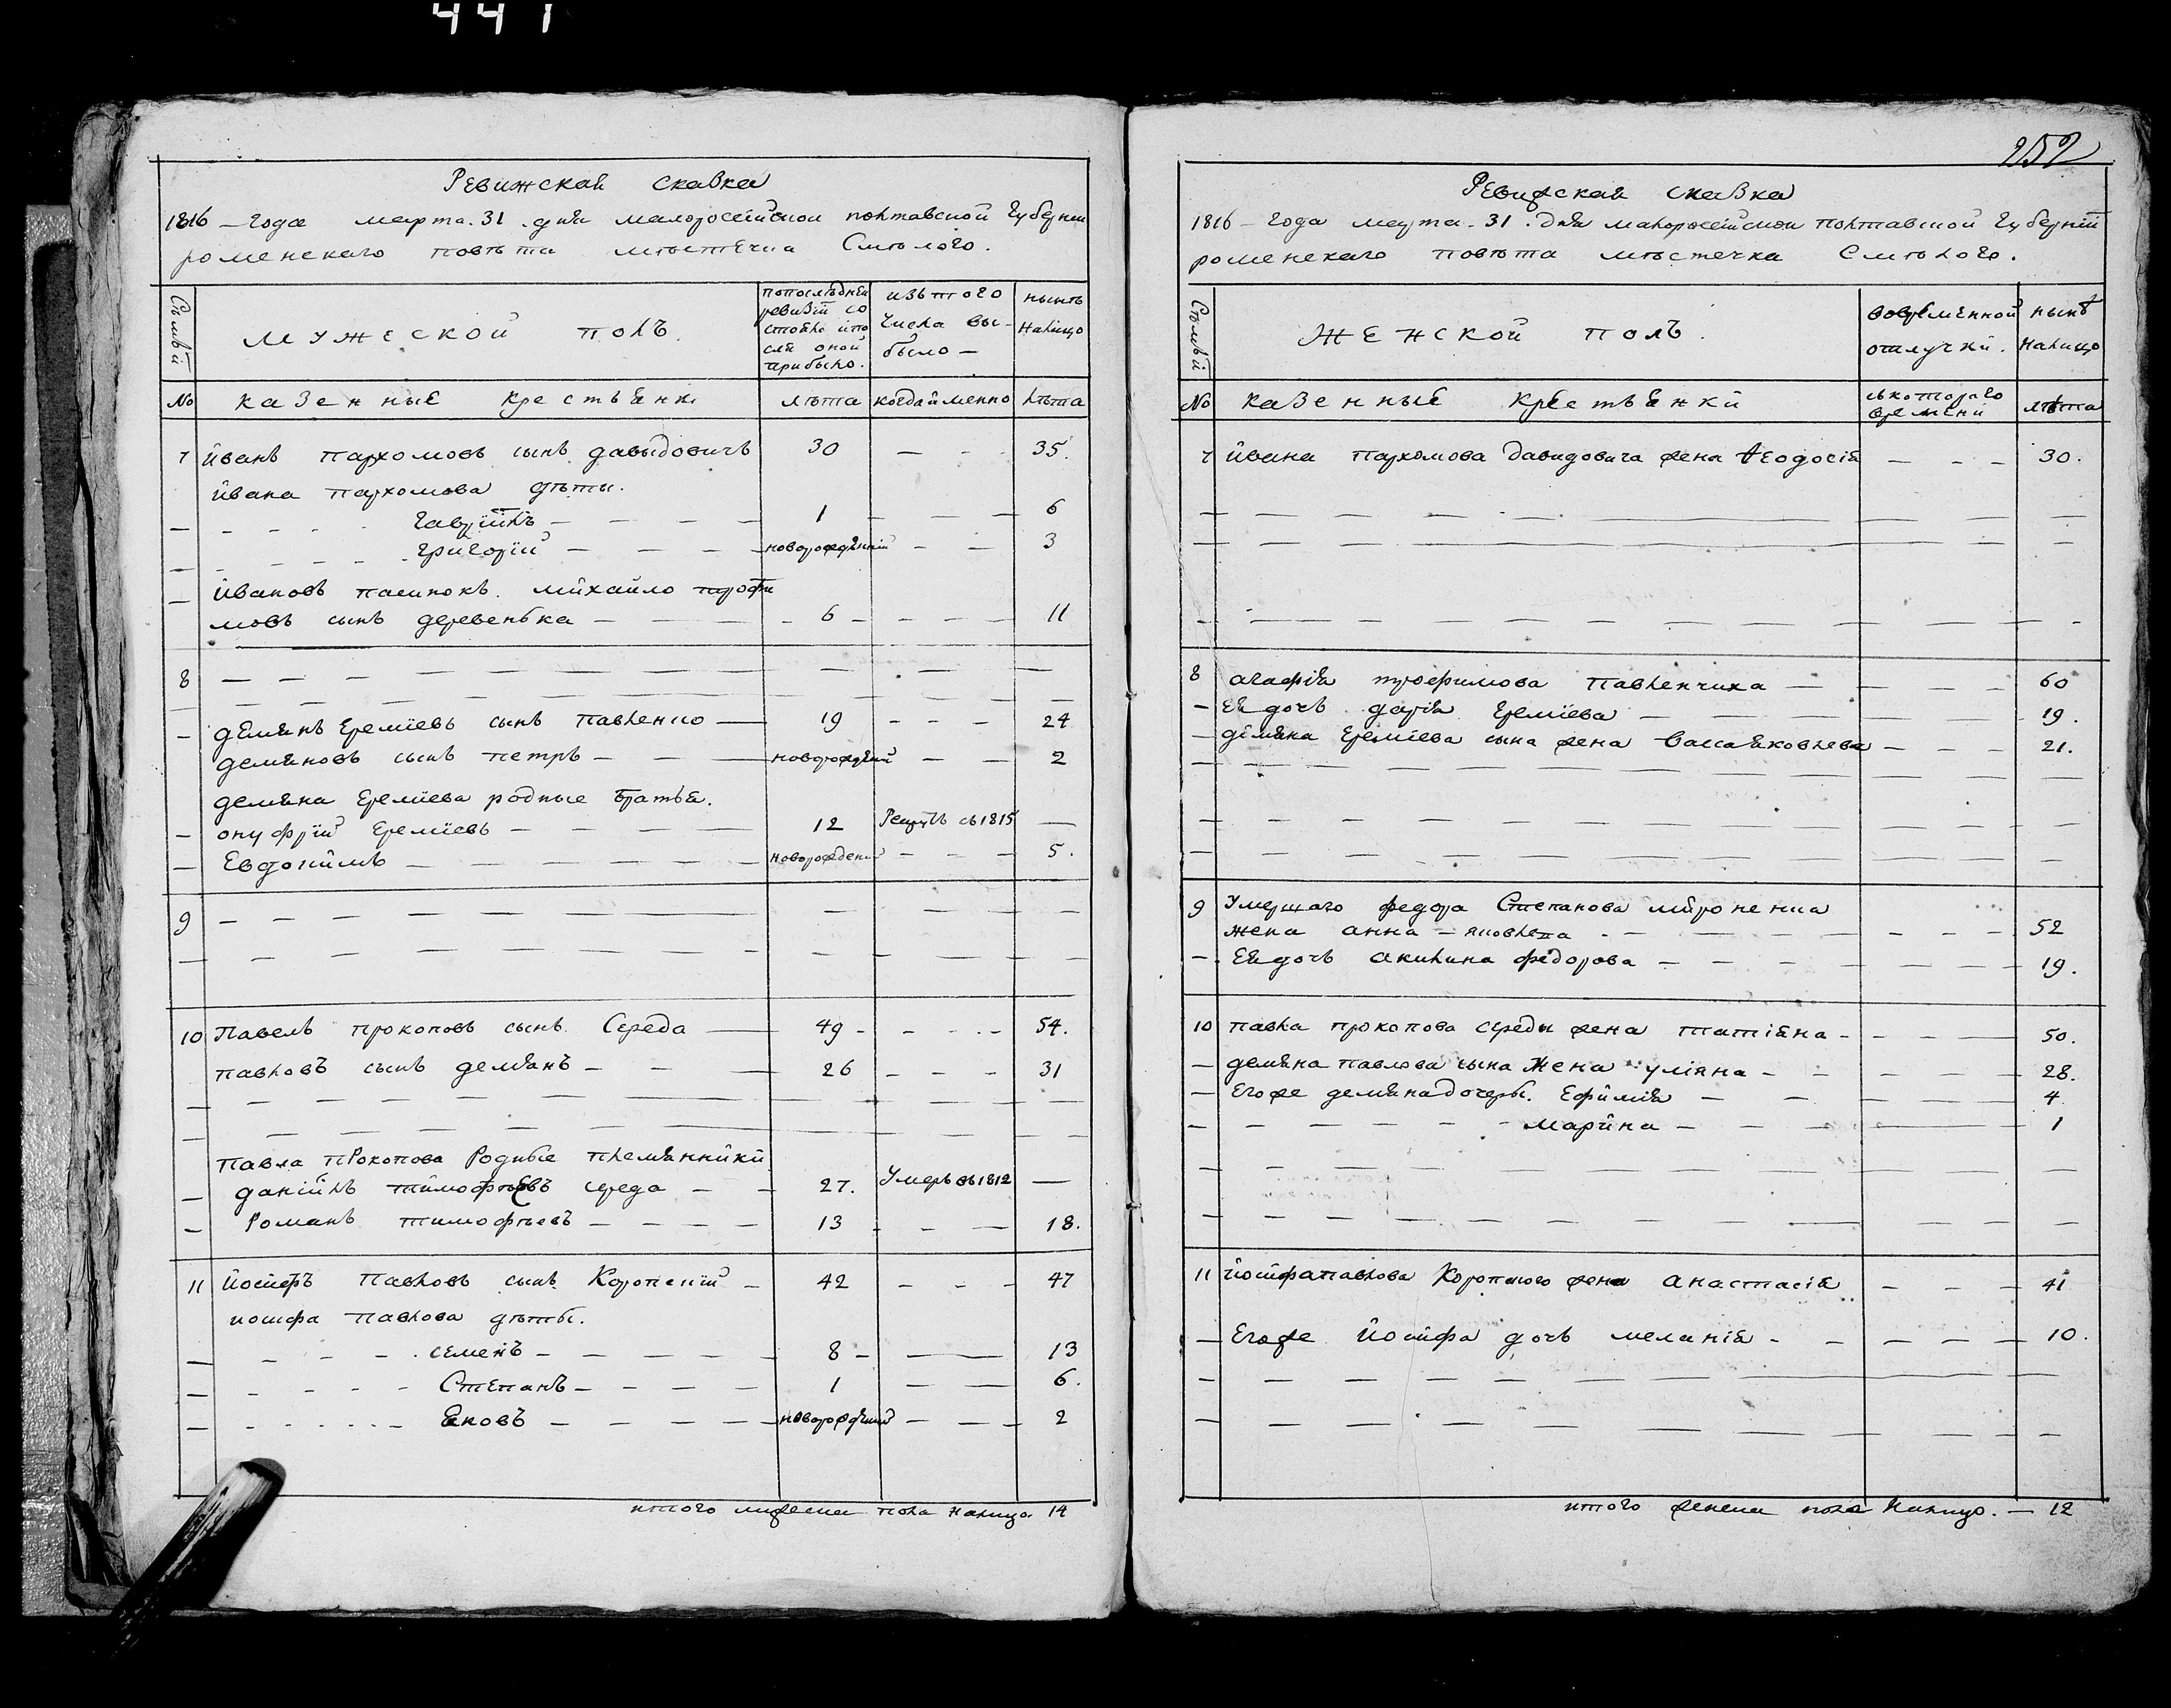 441
Ревижская сказка
1816 – Года марта. 31 дня малороссийской полтавской губернии
роменского повѣта мѣстечка Смѣлого.
Семьи
мужеской полъ.
попослѣдней ревизіи состояло ипосля оной прибыло.
изъ того числа выбыло –
нынѣ налицо
№ казенные крестьяне
лѣта
когда именно
лѣта
7 Иванъ пархомовъ сынъ давыдовичъ 30 – – 35.
Ивана пархомова дѣты.
– Гавріилъ – 1 – 6
– Григорій – новорожденній – 3
– Ивановъ пасинокъ. михайло трофи
мовъ сынъ деревенька – 6 – 11
8 – – –
– демянъ Еремѣевъ сынъ павленко – 19 – 24
демяновъ сынъ петръ – новорожденій – 2
демяна Еремѣева родные братья.
– онуфрій Еремѣевъ – 12 Рекрутъ съ 1815 –
– Евдокимъ – новорожденій – 5.
9 – – –
– – –
10 Павелъ прокоповъ сынъ Середа – 49 – 54.
павловъ сынъ демянъ – 26 – 31
– – –
– – –
павла прокопова родные племянники
– данійлъ тимофѣевъ середа – 27. Умеръ въ 1812 –
– Романъ тимофѣевъ – 13 – 18.
11 Йосифъ Павловъ сынъ Коропскій – 42 – 47
иосифа павлова дѣты.
– семенъ – 8 – 13
– Степанъ – 1 – 6.
– Яковъ – новорожденій – 2
итого мужеска пола налицо. 14
252
Ревижская сказка
1816 – Года марта. 31. дня малороссійской полтавской губерній
роменского повѣта мѣстечка Смѣлого.
Семьи
женской полъ.
вовременной отлучки.
нынѣ налицо
№ казенные крестьянки
съкоторого времени
лѣта
7 Ивана пархомова давидовича жена Ѳеодосія – 30.
– – –
– – –
– – –
8 агафія трофимова павленчиха – 60
– Ея дочь дарія Еремѣева – 19.
– демяна Еремѣева сына жена Васса яковлева – 21.
– – –
– – –
– – –
9 Умершаго федора Степанова мироненка
жена анна – яковлева – 52
– Ея дочь акилина федорова – 19.
10 павла прокопова середы жена татіяна – 50.
– демяна павлова сына жена уліяна – 28.
– Егоже демяна дочеры. Ефимія – 4
– – марина – 1
– – –
– – –
11 Йосифа павлова Коропского жена анастасія – 41
– Егоже Йосифа дочь меланія – 10.
– – –
– – –
итого женска пола налицо. – 12